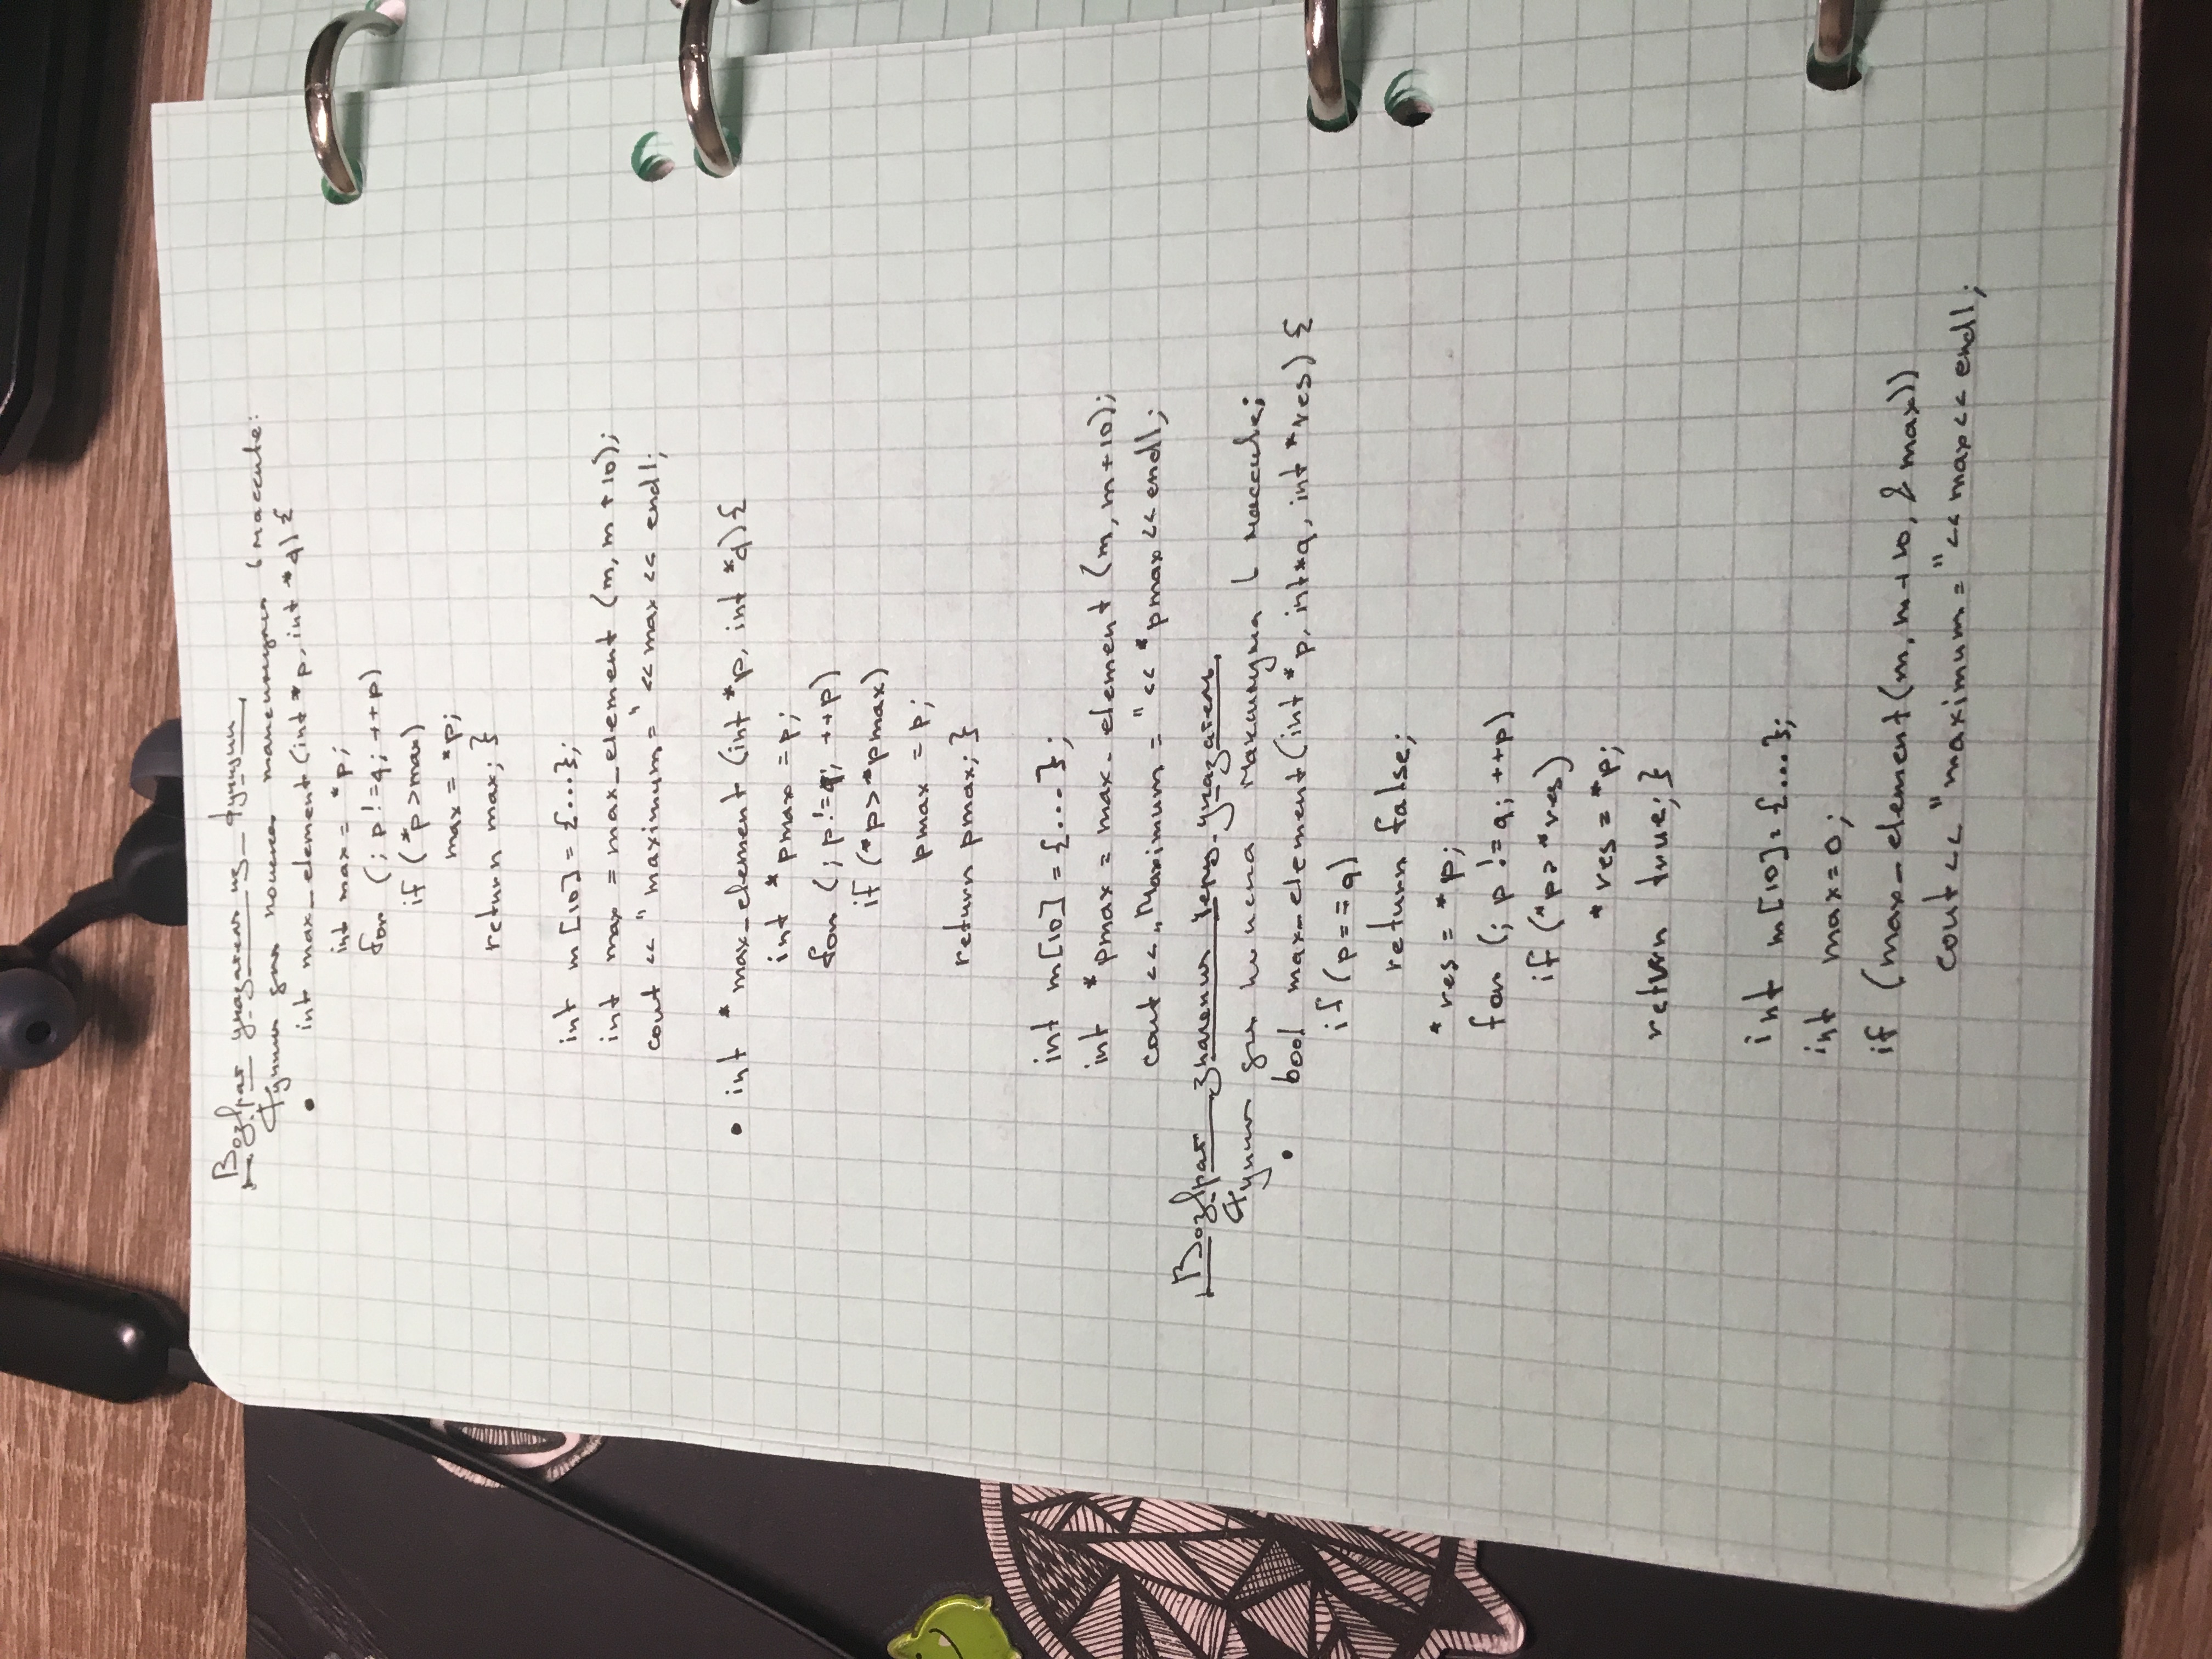 Возврат указателя из функции
Функция для поиска максимума в массиве:
• int max_element (int *p, int *q) {
int max = *p;
for (; p != q; ++p)
if (*p > max)
max = *p;
return max; }
int m [10] = {...};
int max = max_element (m, m + 10);
cout << "maximum = " << max << endl;
• int * max_element (int *p, int *q) {
int * pmax = p;
for (; p != q; ++p)
if (*p > *pmax)
pmax = p;
return pmax; }
int m[10] = {...};
int *pmax = max_element (m, m+10);
cout << „Maximum = " << *pmax << endl;
Возврат значения через указатель
Функция для поиска максимума в массиве:
• bool max_element (int *p, int *q, int *res) {
if (p == q)
return false;
*res = *p;
for (; p != q; ++p)
if (*p > *res)
*res = *p;
return true; }
int m [10] = {...};
int max = 0;
if (max_element (m, m + 10, &max))
cout << "maximum = " << max << endl;